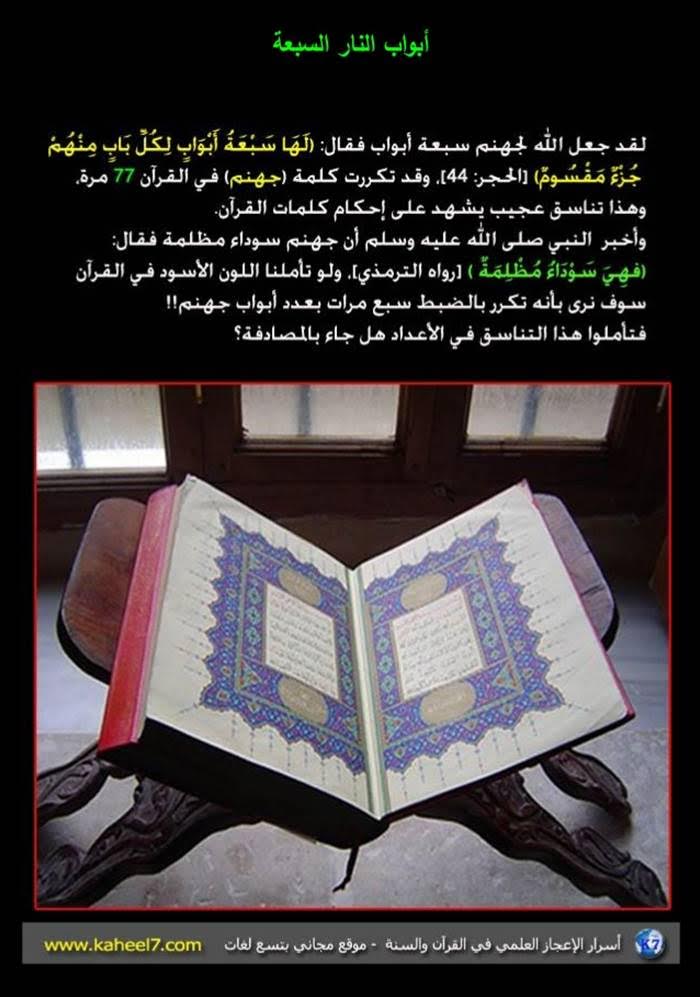 أبواب النار السبعة
لقد جعل الله لجهنم سبعة أبواب فقال: (لَهَا سَبْعَةُ أَبْوَابٍ لِكُلِّ بَابٍ مِنْهُمْ
جُزْءٌ مَقْسُومٌ) [الحجر: 44]، وقد تكررت كلمة (جهنم) في القرآن 77 مرة،
وهذا تناسق عجيب يشهد على إحكام كلمات القرآن.
وأخبر النبي صلى الله عليه وسلم أن جهنم سوداء مظلمة فقال:
(فهِيَ سَوْدَاءُ مُظْلِمَةٌ ) [رواه الترمذي]، ولو تأملنا اللون الأسود في القرآن
سوف نرى بأنه تكرر بالضبط سبع مرات بعدد أبواب جهنم!!
فتأملوا هذا التناسق في الأعداد هل جاء بالمصادفة؟
K7 أسرار الإعجاز العلمي في القرآن والسنة - موقع مجاني بتسع لغات www.kaheel7.com